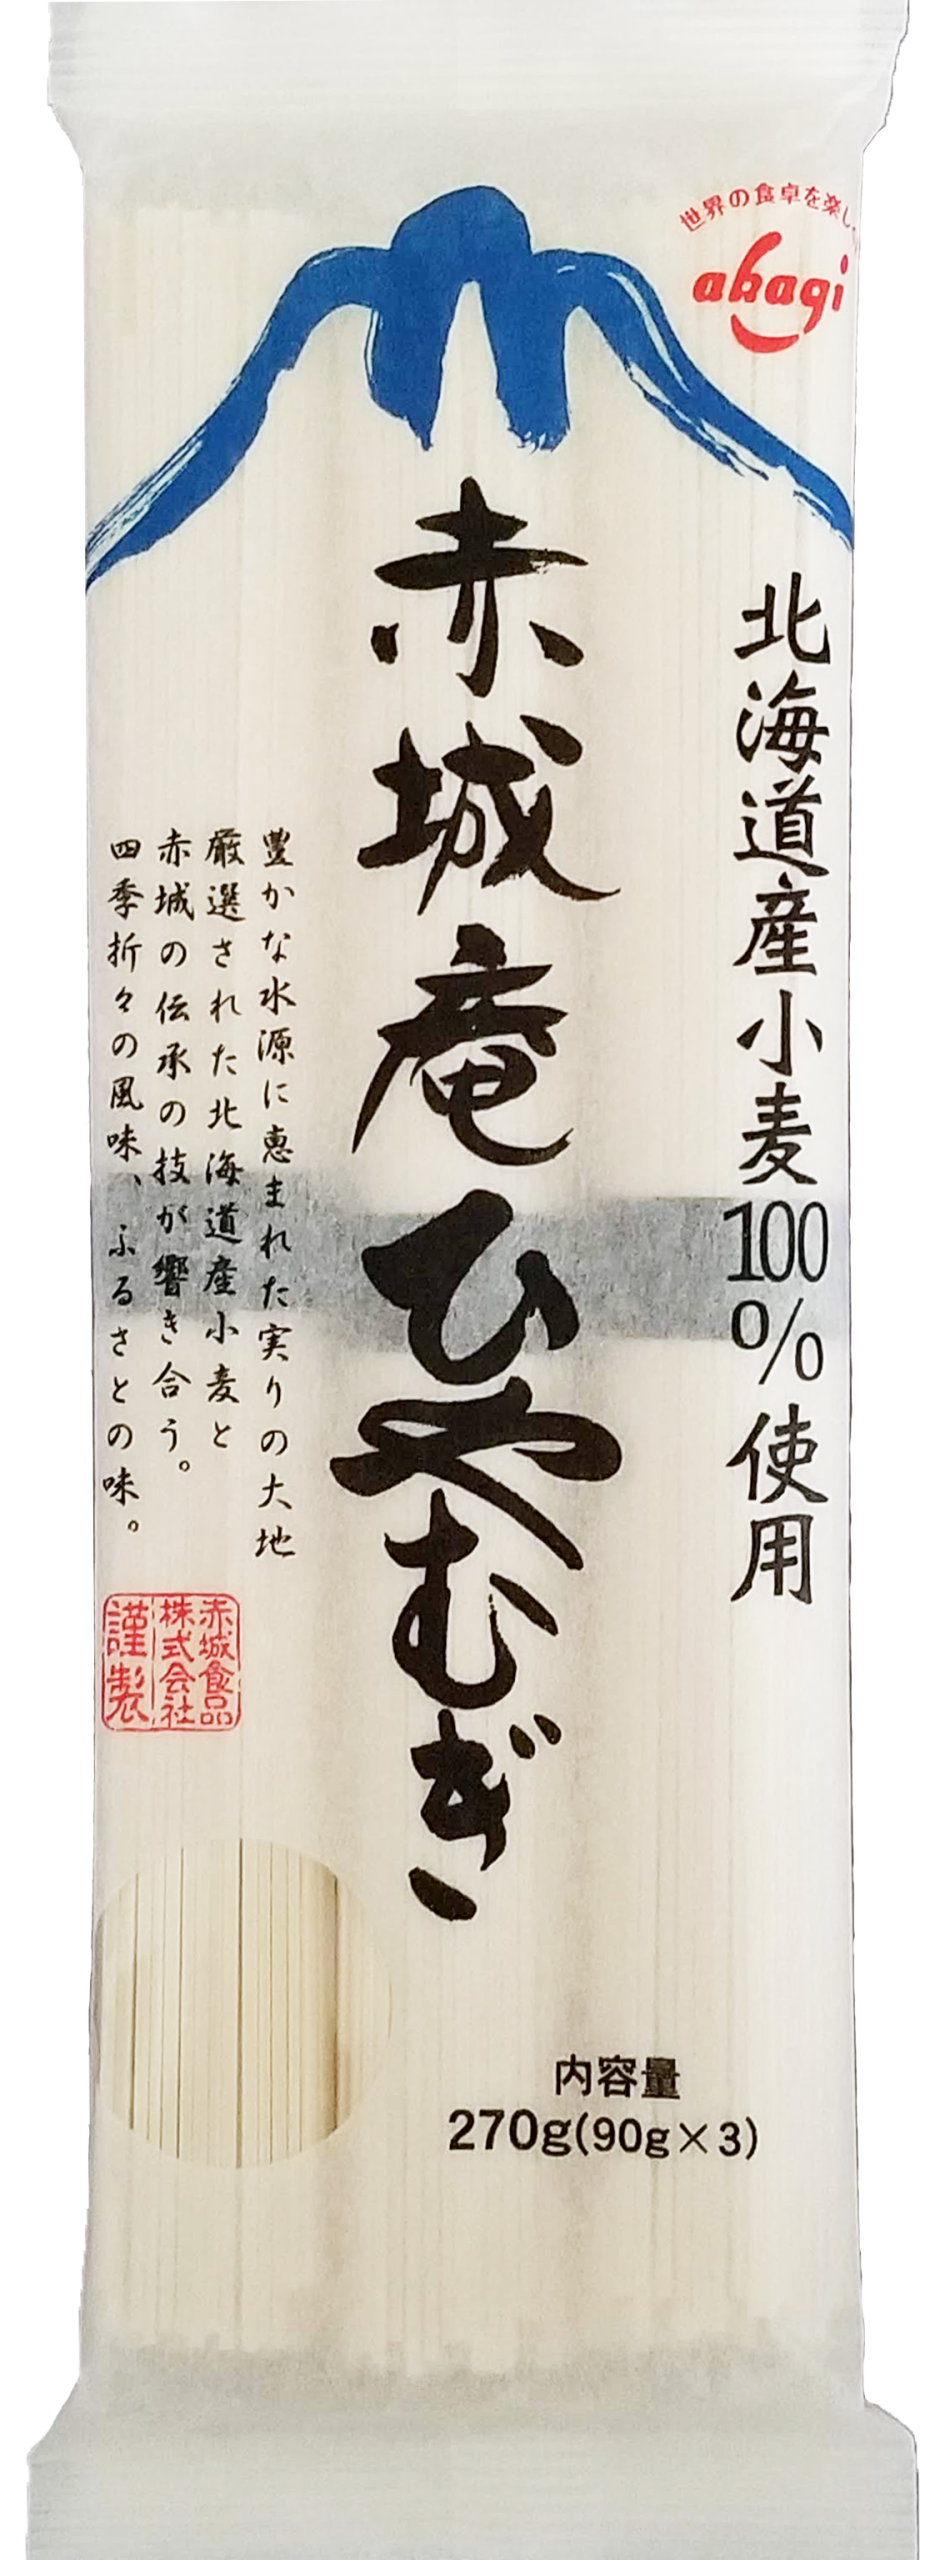 世界の食卓を楽し
akagi
北海道産小麦100%使用
赤城庵ひやむぎ
豊かな水源に恵まれた実りの大地
厳選された北海道産小麦と
赤城の伝承の技が響き合う。
四季折々の風味、ふるさとの味。
赤城食品
株式会社
謹製
内容量
270g(90g×3)